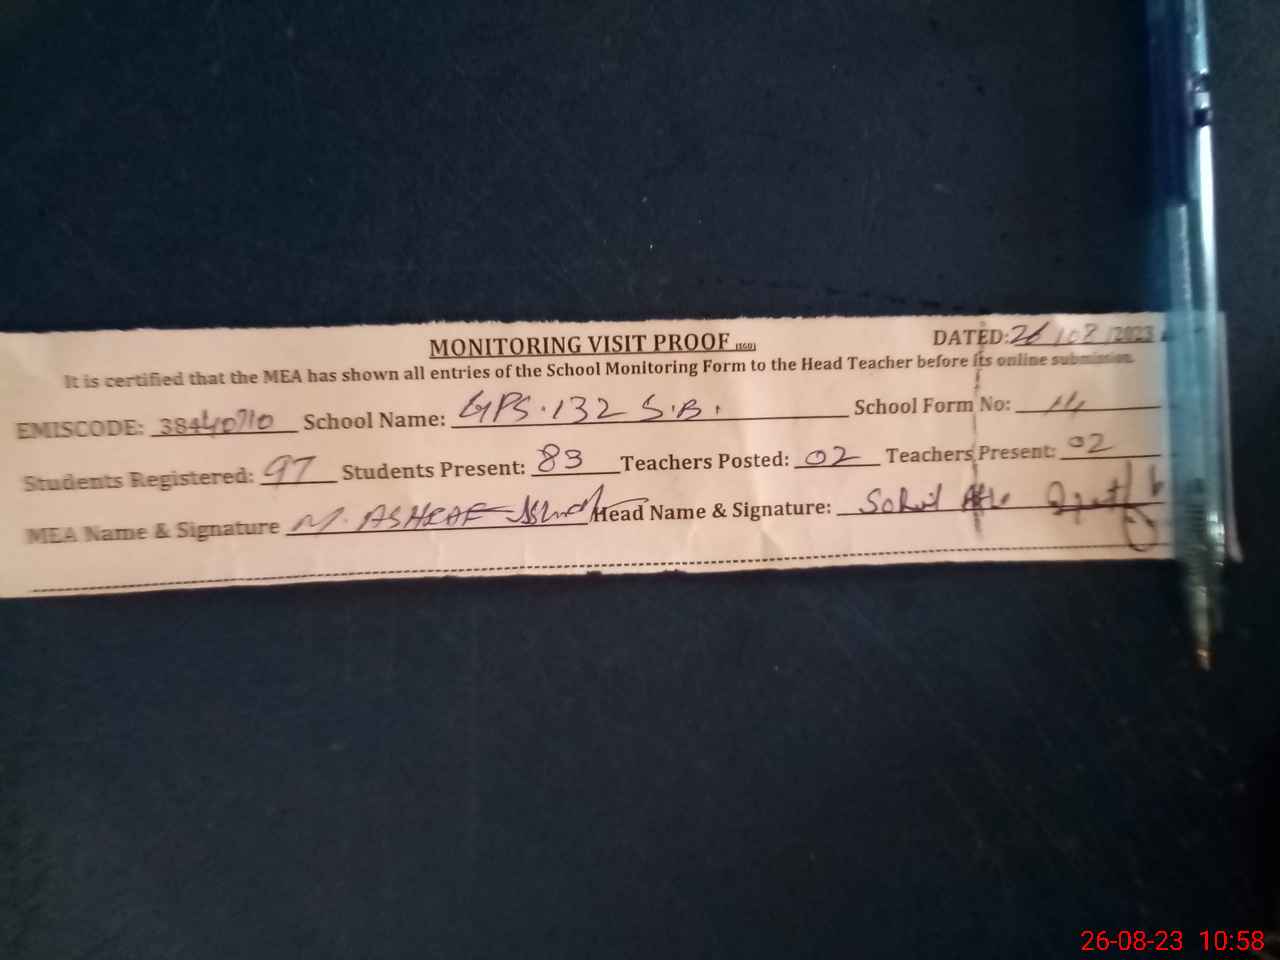 MONITORING VISIT PROOF
DATED: 26/08/2023
It is certified that the MEA has shown all entries of the School Monitoring Form to the Head Teacher before its online submission.
EMISCODE: 38440710 School Name: GPS.132 S.B. School Form No: 14
Students Registered: 97 Students Present: 83 Teachers Posted: 02 Teachers Present: 02
MEA Name & Signature M. ASHRAF Head Name & Signature: Sohail
26-08-23 10:58